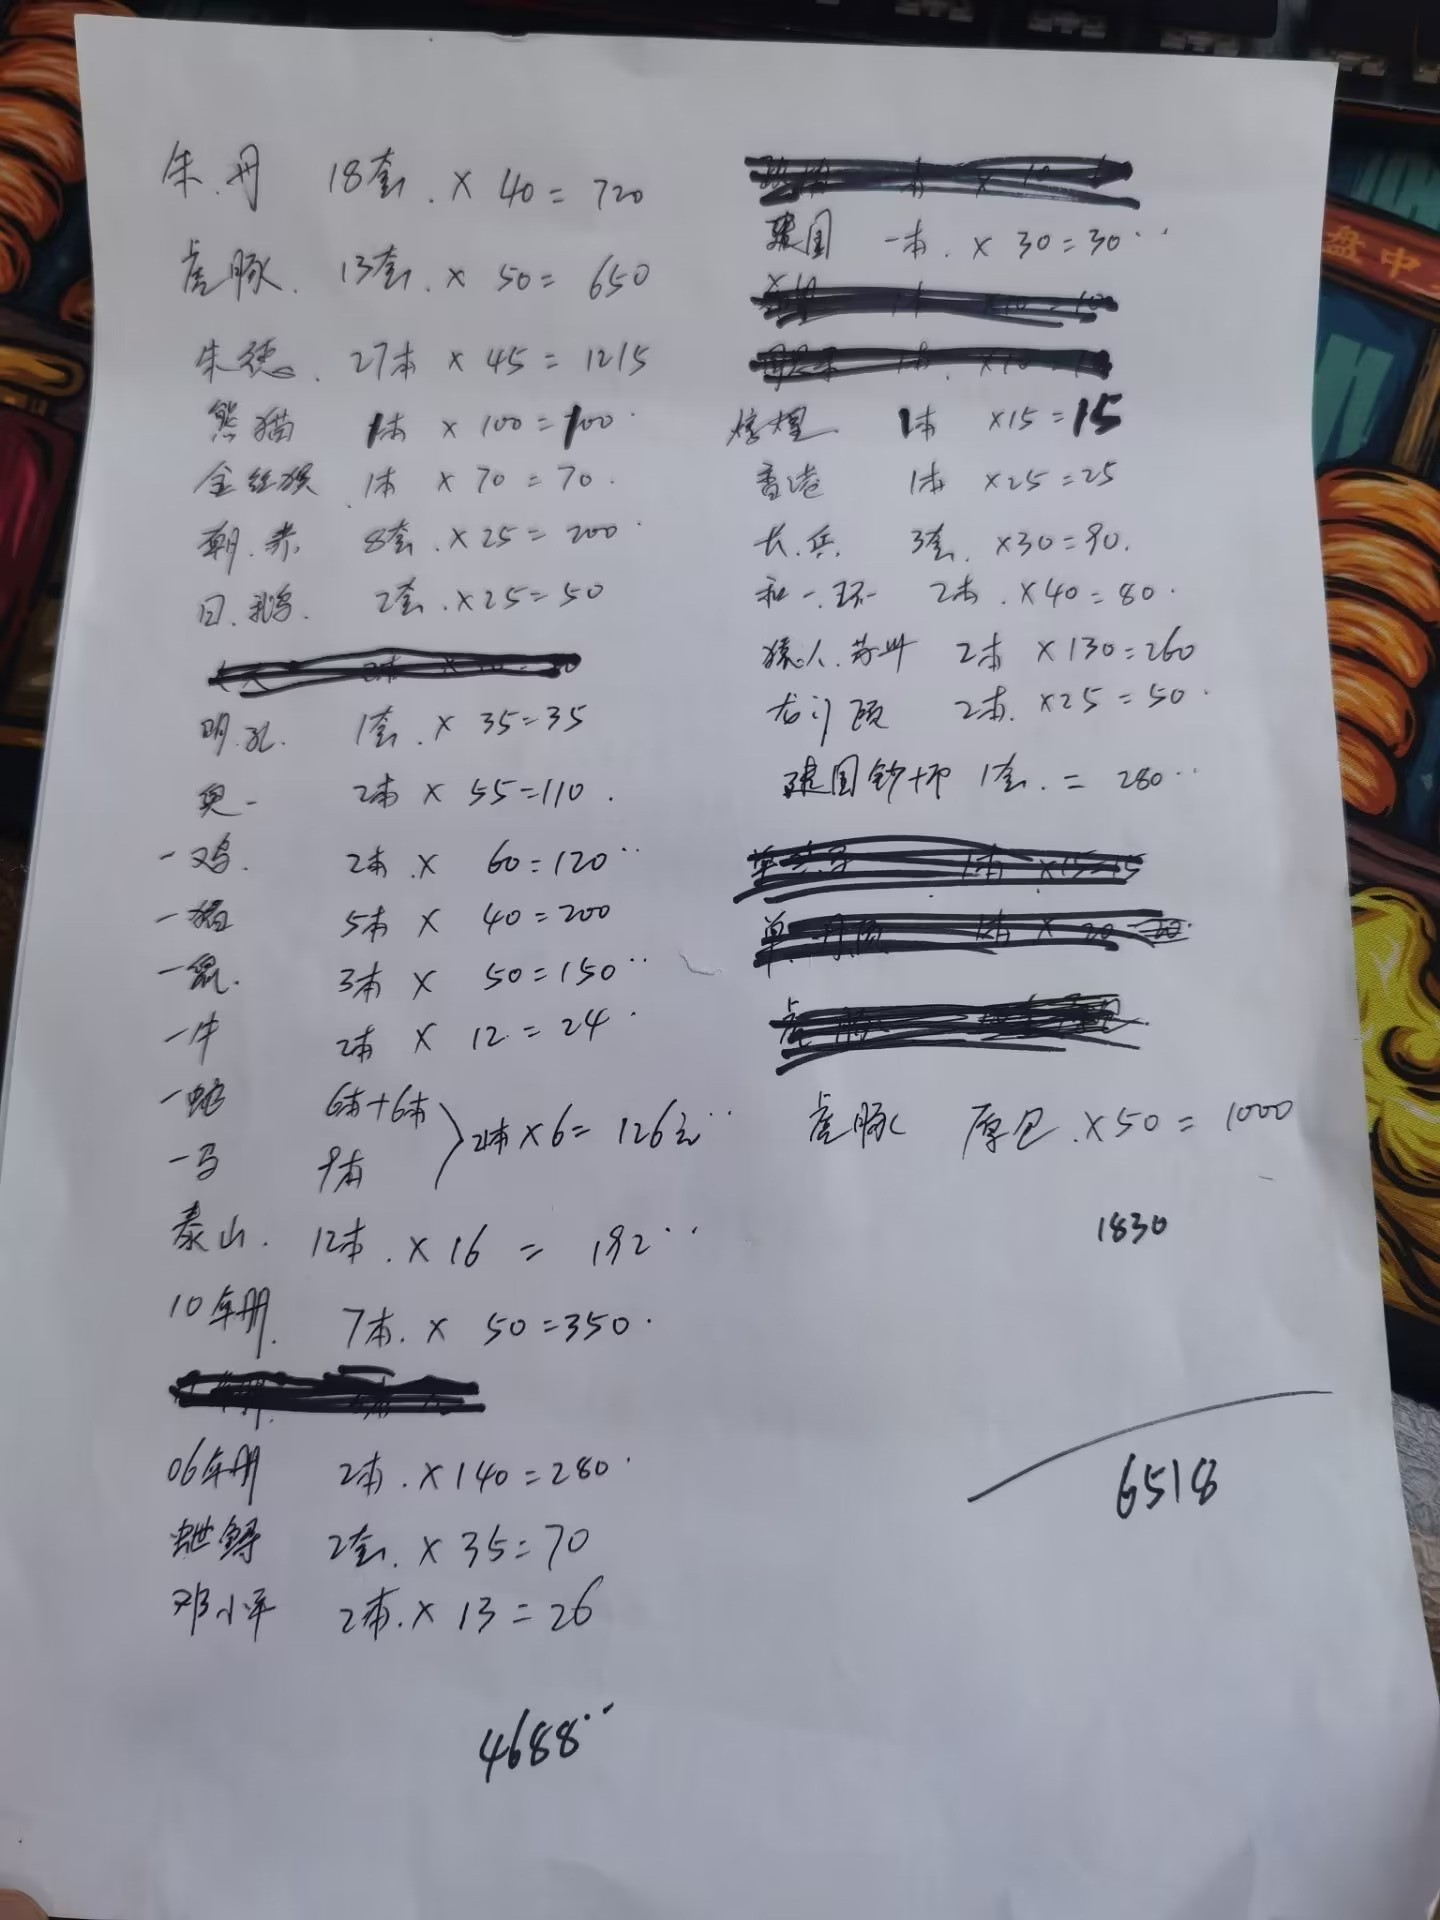 朱.丹 18套.×40=720
虎豚. 13套.×50=650
朱德. 27本×45=1215
熊猫 1本×100=100
金丝猴 1本×70=70.
朝.赤 8套.×25=200
日.鹅. 2套.×25=50
明.孔. 1套.×35=35
奥一 2本×55=110.
一鸡. 2本.×60=120
一猪 5本×40=200
一鼠. 3本×50=150
一牛 2本×12=24
一蛇 6本+6本
一马 9本
21本×6=126元
泰山. 12本.×16=192
10年册. 7本.×50=350.
06年册 2本.×140=280
2套.×35=70
邓小平 2本.×13=26
4688
建国 一本.×30=30
1本×15=15
香港 1本×25=25
长.兵. 3套.×30=90.
和一.环一 2本.×40=80.
猿人.苏州 2本×130=260
龙门 2本.×25=50
建国钞币 1套.=280
虎豚 原包.×50=1000
1830
6518
盘中